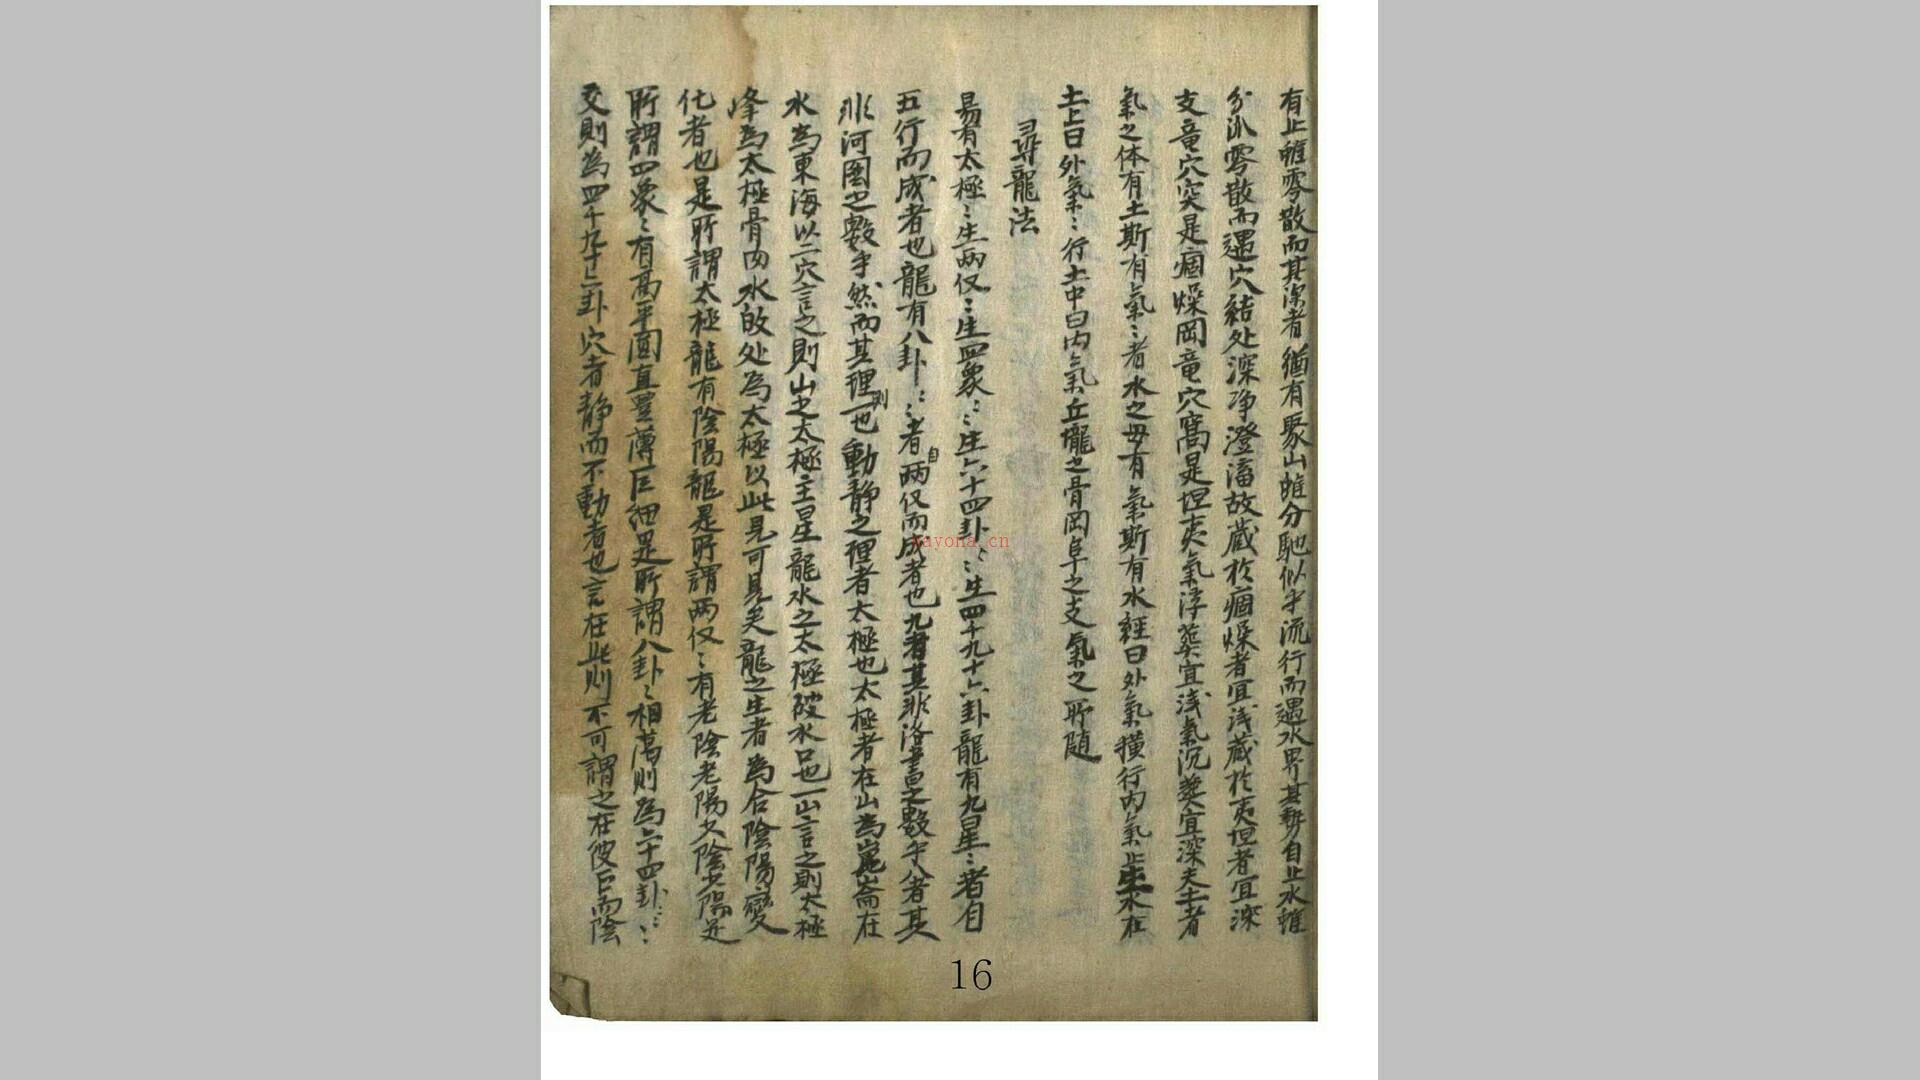 有止雖零散而其深者猶有聚山雖分馳似乎流行而遇水界其勢自止水雖
分派零散而遇穴結处深净澄滀故蔵於痼燥者宜浅蔵於夷坦者宜深
支竜穴突是痼燥岡竜穴窩是坦夷氣浮葬宜浅氣沉葬宜深夫土者
氣之体有土斯有氣〻者水之母有氣斯有水經曰外氣橫行内氣止生水在
土上曰外氣〻行土中曰内氣丘壠之骨岡阜之支氣之所随
尋龍法
易有太極〻生兩仪〻生四象〻〻生六十四卦〻〻生四千九十六卦龍有九星〻者自
五行而成者也龍有八卦〻〻者自兩仪而成者也九者其非洛書之數乎八者其
非河圖之數乎然而其理則一也動静之理者太極也太極者在山為崑崙在
水為東海以二穴言之則山之太極主星龍水之太極破水口也一山言之則太極
峰為太極骨肉水啟处為太極以此見可見矣龍之生者為合陰陽變
化者也是所謂太極龍有陰陽龍是所謂兩仪〻有老陰老陽少陰少陽是
所謂四象〻有高平圓直豊薄巨細是所謂八卦〻相蕩則為六十四卦〻〻
交則為四千九十六卦穴者静而不動者也言在此則不可謂之在彼巳而陰
16
xayona.cn